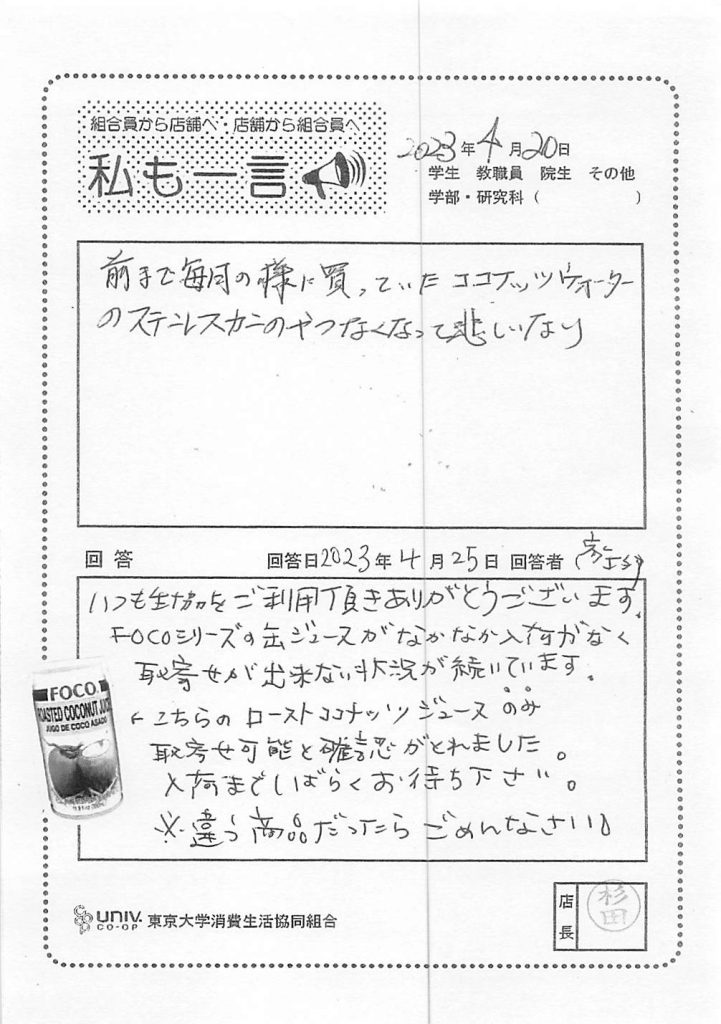 組合員から店舗へ・店舗から組合員へ
私も一言
2023年4月20日
学生 教職員 院生 その他
学部・研究科（ ）
前まで毎月の様に買っていたココナッツウォーター
のステンレスカンのやつなくなって悲しいなり
回答 回答日2023年4月25日 回答者（
いつも生協をご利用頂きありがとうございます。
FOCOシリーズの缶ジュースがなかなか入荷がなく
取寄せが出来ない状況が続いています。
←こちらのローストココナッツジュースのみ
取寄せ可能と確認がとれました。
入荷までしばらくお待ち下さい。
※違う商品だったらごめんなさい。
FOCO
ROASTED COCONUT JUICE
JUGO DE COCO ASADO
UNIV.
CO-OP
東京大学消費生活協同組合
店長
杉田